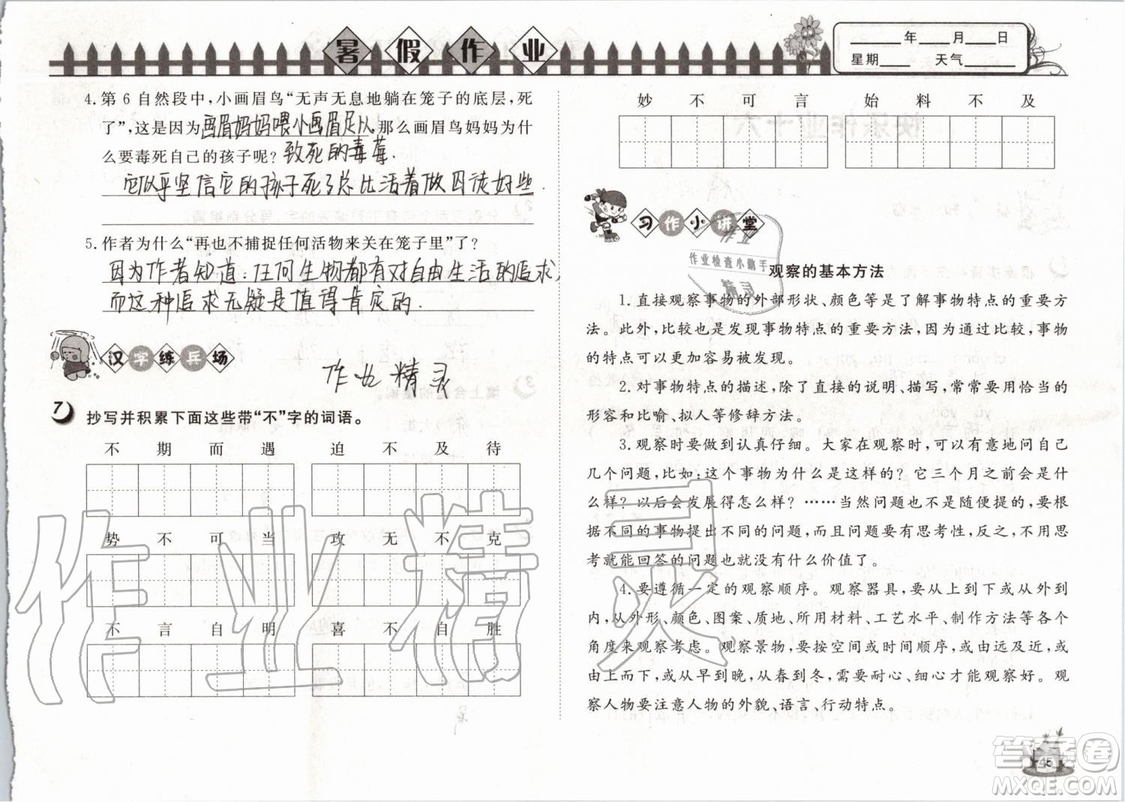 暑假作业
____年____月____日
星期____ 天气____
4. 第 6 自然段中，小画眉鸟“无声无息地躺在笼子的底层，死
了”，这是因为画眉妈妈喂小画眉足以. 那么画眉鸟妈妈为什
么要毒死自己的孩子呢？致死的毒莓.
它似乎坚信它的孩子死了总比活着做囚徒好些
5. 作者为什么“再也不捕捉任何活物来关在笼子里”了？
因为作者知道：任何生物都有对自由生活的追求，
而这种追求无疑是值得肯定的.
汉字练兵场
作业精灵
抄写并积累下面这些带“不”字的词语。
不期而遇 迫不及待
势不可当 攻无不克
不言自明 喜不自胜
妙不可言 始料不及
习作小讲堂
作业检查小助手
精灵
观察的基本方法
1. 直接观察事物的外部形状、颜色等是了解事物特点的重要方
法。此外，比较也是发现事物特点的重要方法，因为通过比较，事物
的特点可以更加容易被发现。
2. 对事物特点的描述，除了直接的说明、描写，常常要用恰当的
形容和比喻、拟人等修辞方法。
3. 观察时要做到认真仔细。大家在观察时，可以有意地问自己
几个问题，比如：这个事物为什么是这样的？它三个月之前会是什
么样？以后会发展得怎么样？……当然问题不是随便提的，要根
据不同的事物提出不同的问题，而且问题要有思考性，反之，不用思
考就能回答的问题也就没什么价值了。
4. 要遵循一定的观察顺序。观察器具，从上到下或从外到
内，从外形、颜色、图案、质地、所用材料、工艺水平、制作方法等各个
角度来观察考虑。观察景物，要按空间或时间顺序，从远到近或从
近到远，从早到晚，从春到冬，需要耐心、细心才能观察好。观
察人物要注意人物的外貌、语言、行动特点。
作业精灵
45
答案圈
MXQE.COM